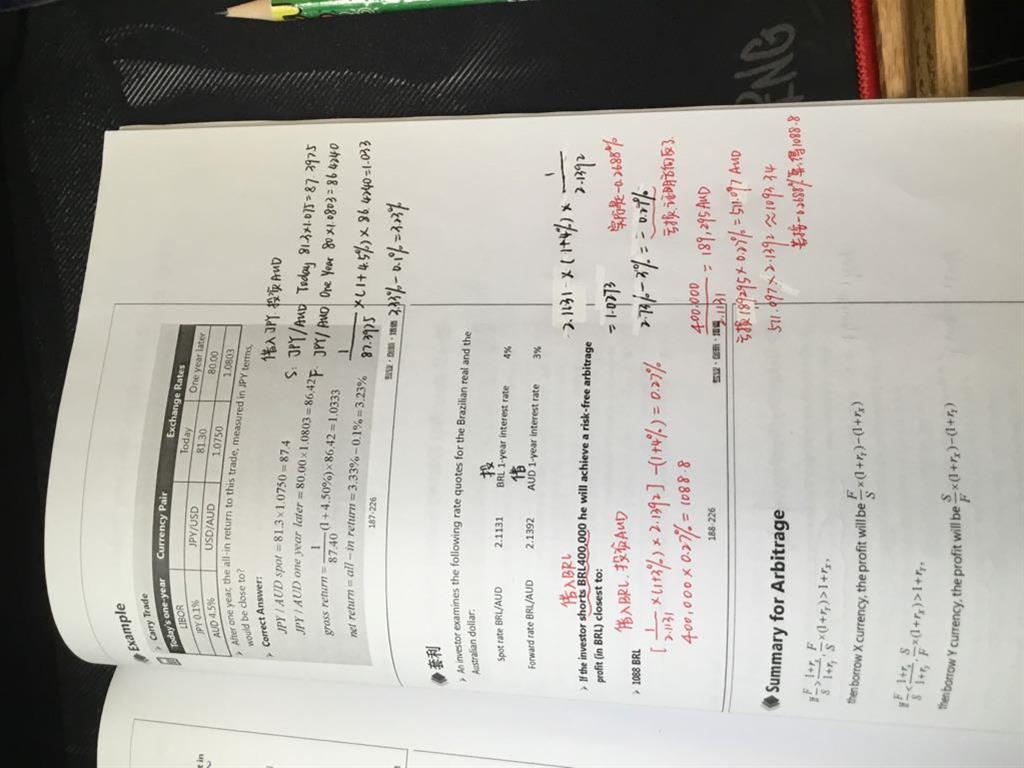 Example
Carry Trade
Today's one-year Currency Pair Exchange Rates
LIBOR Today One year later
JPY 0.1% JPY/USD 81.30 80.00
AUD 4.5% USD/AUD 1.0750 1.0803
After one year, the all-in return to this trade, measured in JPY terms,
would be close to?
Correct Answer:
JPY / AUD spot = 81.3×1.0750 = 87.4
JPY / AUD one year later = 80.00×1.0803 = 86.42
gross return = 1/87.40 (1+4.50%)×86.42 = 1.0333
net return = all – in return = 3.33% – 0.1% = 3.23%
187-226
借入JPY. 投资AUD
S: JPY/AUD Today 81.3×1.075=87.3975
F: JPY/AUD One Year 80×1.0803=86.4240
1/87.3975 ×(1+4.5%)×86.4240=1.033
3.33%-0.1%=3.23%
专业·创新·增值
套利
An investor examines the following rate quotes for the Brazilian real and the
Australian dollar:
投
Spot rate BRL/AUD 2.1131 BRL 1-year interest rate 4%
借
Forward rate BRL/AUD 2.1392 AUD 1-year interest rate 3%
借入BRL
If the investor shorts BRL400,000 he will achieve a risk-free arbitrage
profit (in BRL) closest to:
1088 BRL
借入BRL. 投资AUD
[1/2.1131 ×(1+3%)×2.1392]-(1+4%)=0.27%
400,000×0.27%=1088.8
188-226
2.1131×(1+4%)×1/2.1392
=1.0273
实际是-0.2688%
2.73%-3%=-0.27%
亏损说明方向反了
400,000/2.1131=189,295AUD
专业·创新·增值
亏损189295×0.27%=511.097AUD
511.097×2.1392≈1093.34
若按-0.2688%算得1088.8
Summary for Arbitrage
If F/S > (1+rₓ)/(1+rᵧ), F/S×(1+rᵧ)>1+rₓ,
then borrow X currency, the profit will be F/S×(1+rᵧ)–(1+rₓ)
If F/S < (1+rₓ)/(1+rᵧ), S/F×(1+rₓ)>1+rᵧ,
then borrow Y currency, the profit will be S/F×(1+rₓ)–(1+rᵧ)